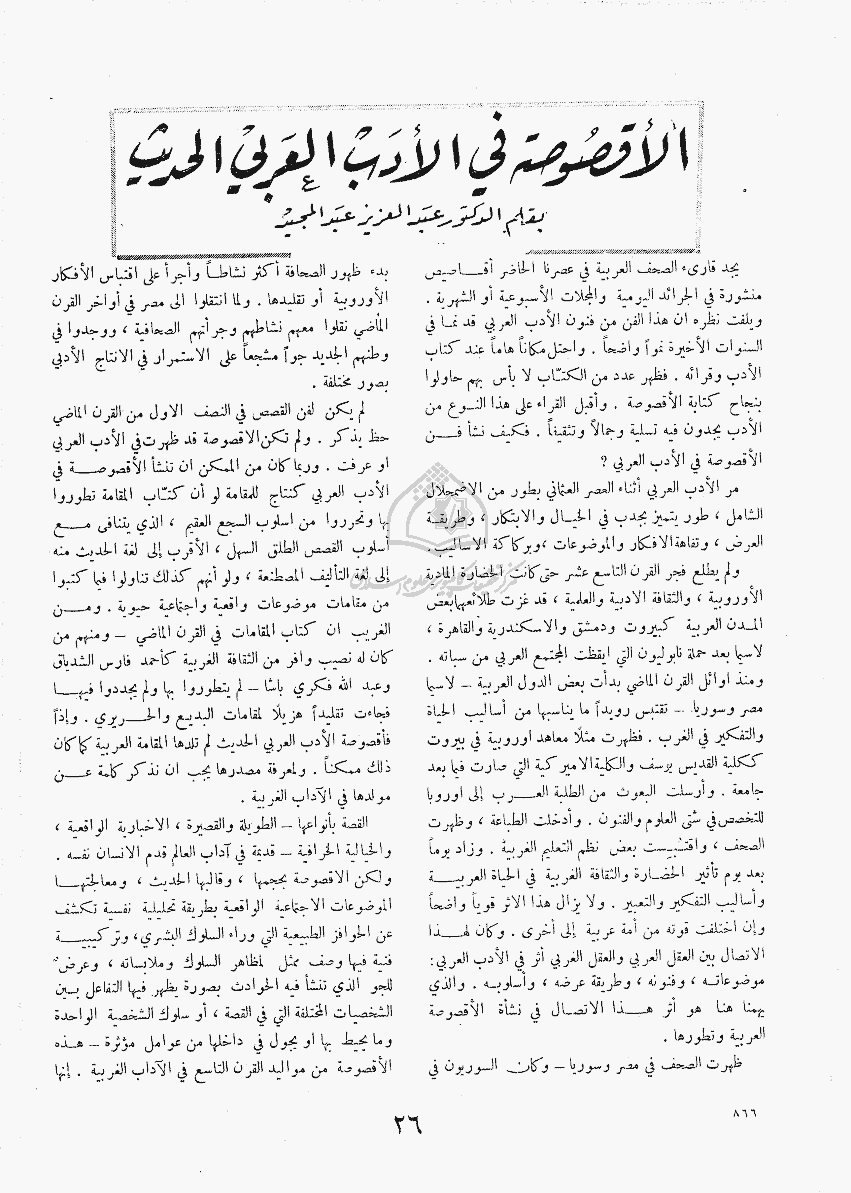 الأقصوصة في الأدب العربي الحديث
بقلم الدكتور عبد العزيز عبد المجيد
يجد قارىء الصحف العربية في عصرنا الحاضر أقـــاصيص
منشورة في الجرائد اليومية والمجلات الأسبوعية أو الشهرية .
ويلفت نظره ان هذا الفن من فنون الأدب العربي قد نمـا في
السنوات الأخيرة نمواً واضحاً . واحتل مكاناً هاماً عند كتاب
الأدب وقرائه . فظهر عدد من الكتّاب لا بأس بهم حاولوا
بنجاح كتابة الأقصوصة . وأقبل القراء على هذا النـوع من
الأدب يجدون فيه تسلية وجمالاً وتثقيفاً . فكيف نشأ فـــن
الأقصوصة في الأدب العربي ؟
مر الأدب العربي أثناء العصر العثماني بطور من الاضمحلال
الشامل ، طور يتميز بجدب في الخيـال والابتكار ، وطريقـة
العرض ، وتفاهة الافكار والموضوعات ، وبركاكة الاساليب .
ولم يطلع فجر القرن التاسع عشر حتى كانت الحضارة المادية
الأوروبية ، والثقافة الادبية والعلمية ، قد غزت طلائعها بعض
المـدن العربية كبيروت ودمشق والاسكندرية والقاهرة ،
لاسيما بعد حملة نابوليون التي ايقظت المجتمع العربي من سباته .
ومنذ اوائل القرن الماضي بدأت بعض الدول العربية – لاسيما
مصر وسوريا – تقتبس رويداً ما يناسبها من أساليب الحياة
والتفكير في الغرب . فظهرت مثلًا معاهد اوروبية في بيروت
ككلية القديس يوسف والكلية الاميركية التي صارت فيما بعد
جامعة . وأرسلت البعوث من الطلبة العـــرب إلى اوروبا
للتخصص في شتى العلوم والفنون . وأدخلت الطباعة ، وظهرت
الصحف ، واقتبست بعض نظم التعليم الغربية . وزاد يوماً
بعد يوم تأثير الحضـارة والثقافة الغربية في الحياة العربيـــة
وأساليب التفكير والتعبير . ولا يزال هذا الاثر قوياً واضحاً
وإن اختلفت قوته من أمة عربية إلى أخرى . وكان لهــذا
الاتصال بين العقل العربي والعقل الغربي أثر في الأدب العربي:
موضوعاتـه ، وفنونه ، وطريقة عرضه ، وأسلوبـه . والذي
يهمنا هنا هو أثر هـــذا الاتصال في نشأة الأقصوصة
العربية وتطورها .
ظهرت الصحف في مصر وسوريا – وكان السوريون في
بدء ظهور الصحافة أكثر نشاطـاً وأجرأ على اقتباس الأفكار
الأوروبية أو تقليدها . ولما انتقلوا الى مصر في أواخر القرن
الماضي نقلوا معهم نشاطهم وجرأتهم الصحافية ، ووجدوا في
وطنهم الجديد جواً مشجعاً على الاستمرار في الانتاج الأدبي
بصور مختلفة .
لم يكن لفن القصص في النصف الاول من القرن الماضي
حظ يذكر . ولم تكن الاقصوصة قد ظهرت في الأدب العربي
او عرفت . وربما كان من الممكن ان تنشأ الأقصوصـــة في
الأدب العربي كنتاج للمقامة لو أن كتّاب المقامة تطوروا
بها وتحرروا من اسلوب السجع العقيم ، الذي يتنافى مـــع
أسلوب القصص الطلق السهل ، الأقرب إلى لغة الحديث منه
إلى لغة التأليف المصطنعة ، ولو أنهم كذلك تناولوا فيما كتبوا
من مقامات موضوعات واقعية واجتماعية حيوية . ومـــن
الغريب ان كتاب المقامات في القرن الماضي – ومنهم من
كان له نصيب وافر من الثقافة الغربية كأحمد فارس الشدياق
وعبد الله فكري باشا – لم يتطوروا بها ولم يجددوا فيهـــا
فجاءت تقليداً هزيلًا لمقامات البديع والحـــريري . وإذاً
فأقصوصة الأدب العربي الحديث لم تلدها المقامة العربية كما كان
ذلك ممكناً . ولمعرفة مصدرها يجب ان نذكر كلمة عـــن
مولدها في الآداب الغربية .
القصة بأنواعها – الطويلة والقصيرة ، الاخبارية الواقعية ،
والخيالية الخرافية – قديمة في آداب العالم قدم الانسان نفسه .
ولكن الاقصوصة بحجمها ، وقالبها الحديث ، ومعالجتهــا
الموضوعات الاجتماعية الواقعية بطريقة تحليلية نفسية تكشف
عن الحوافز الطبيعية التي وراء السلوك البشري، وتركيبيـــة
فنية فيها وصف ممثل لمظاهر السلوك وملابساته ، وعرض
للجو الذي تنشأ فيه الحوادث بصورة يظهر فيها التفاعل بـين
الشخصيات المختلفة التي في القصة ، أو سلوك الشخصية الواحدة
وما يحيط بها او يجول في داخلها من عوامل مؤثرة – هـذه
الأقصوصة من مواليد القرن التاسع في الآداب الغربية . إنها
٢٦
٨٦٦